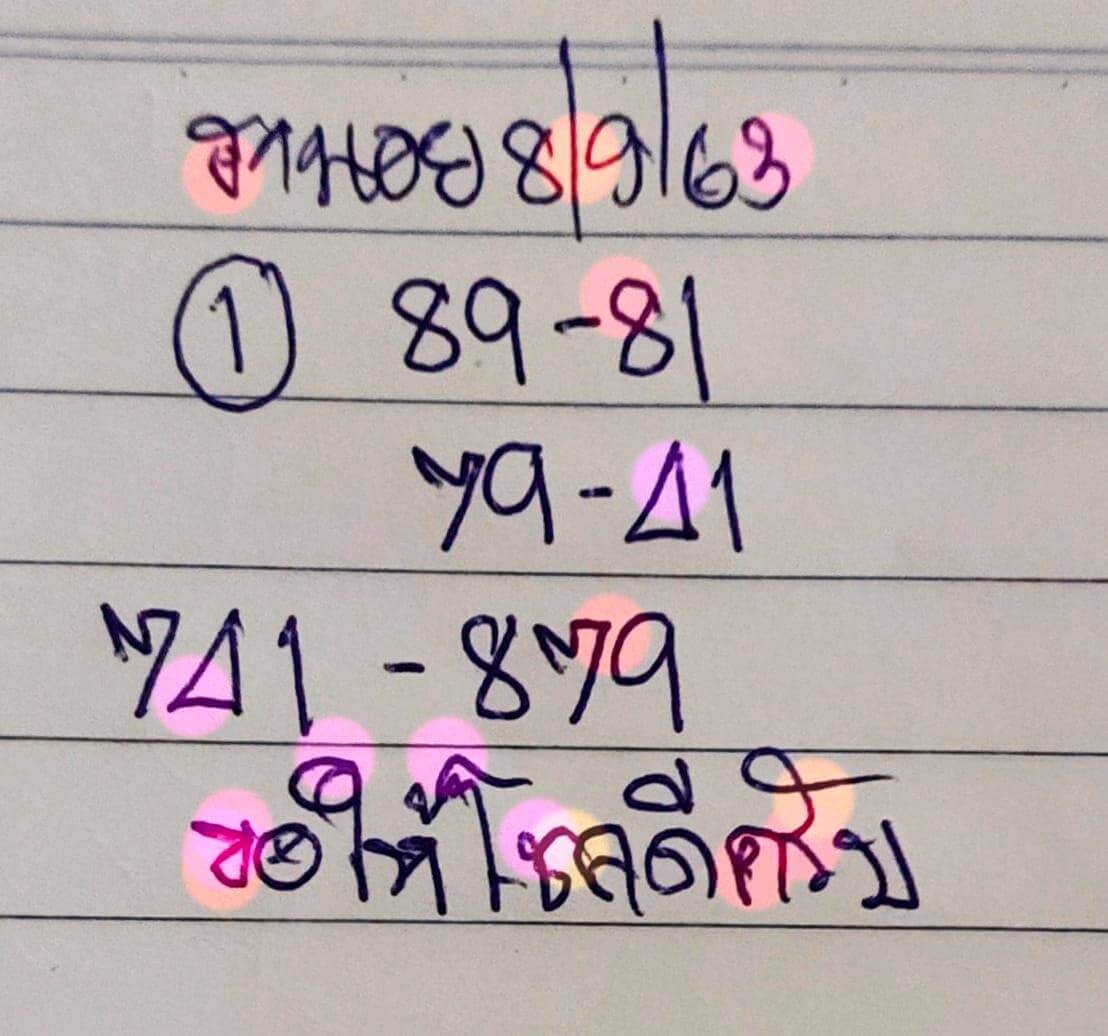 ฮานอย 8/9/63
① 89-81
79-41
741-879
ขอให้โชคดีครับ